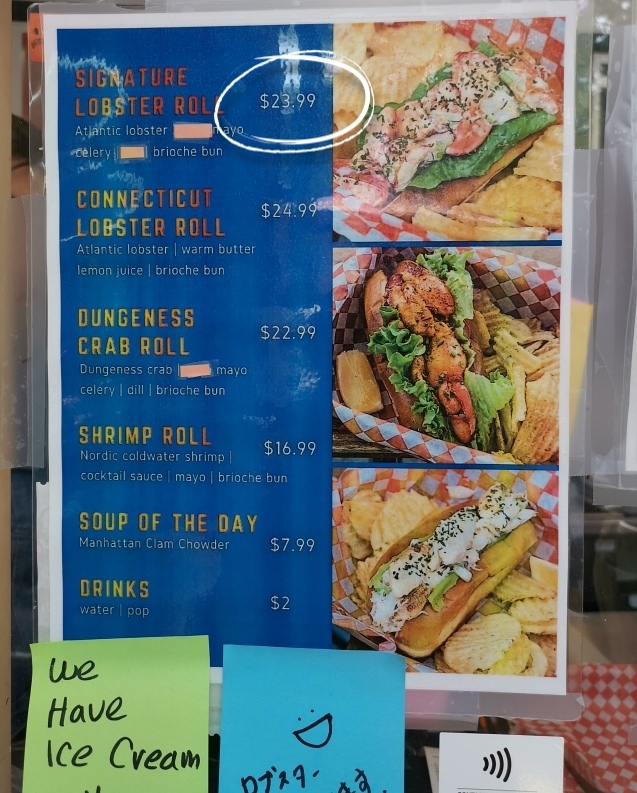 SIGNATURE
LOBSTER ROLL $23.99
Atlantic lobster mayo
celery brioche bun
CONNECTICUT
LOBSTER ROLL $24.99
Atlantic lobster | warm butter
lemon juice | brioche bun
DUNGENESS
CRAB ROLL $22.99
Dungeness crab | mayo
celery | dill | brioche bun
SHRIMP ROLL $16.99
Nordic coldwater shrimp |
cocktail sauce | mayo | brioche bun
SOUP OF THE DAY
Manhattan Clam Chowder $7.99
DRINKS $2
water | pop
we
Have
Ice Cream
ロブスター